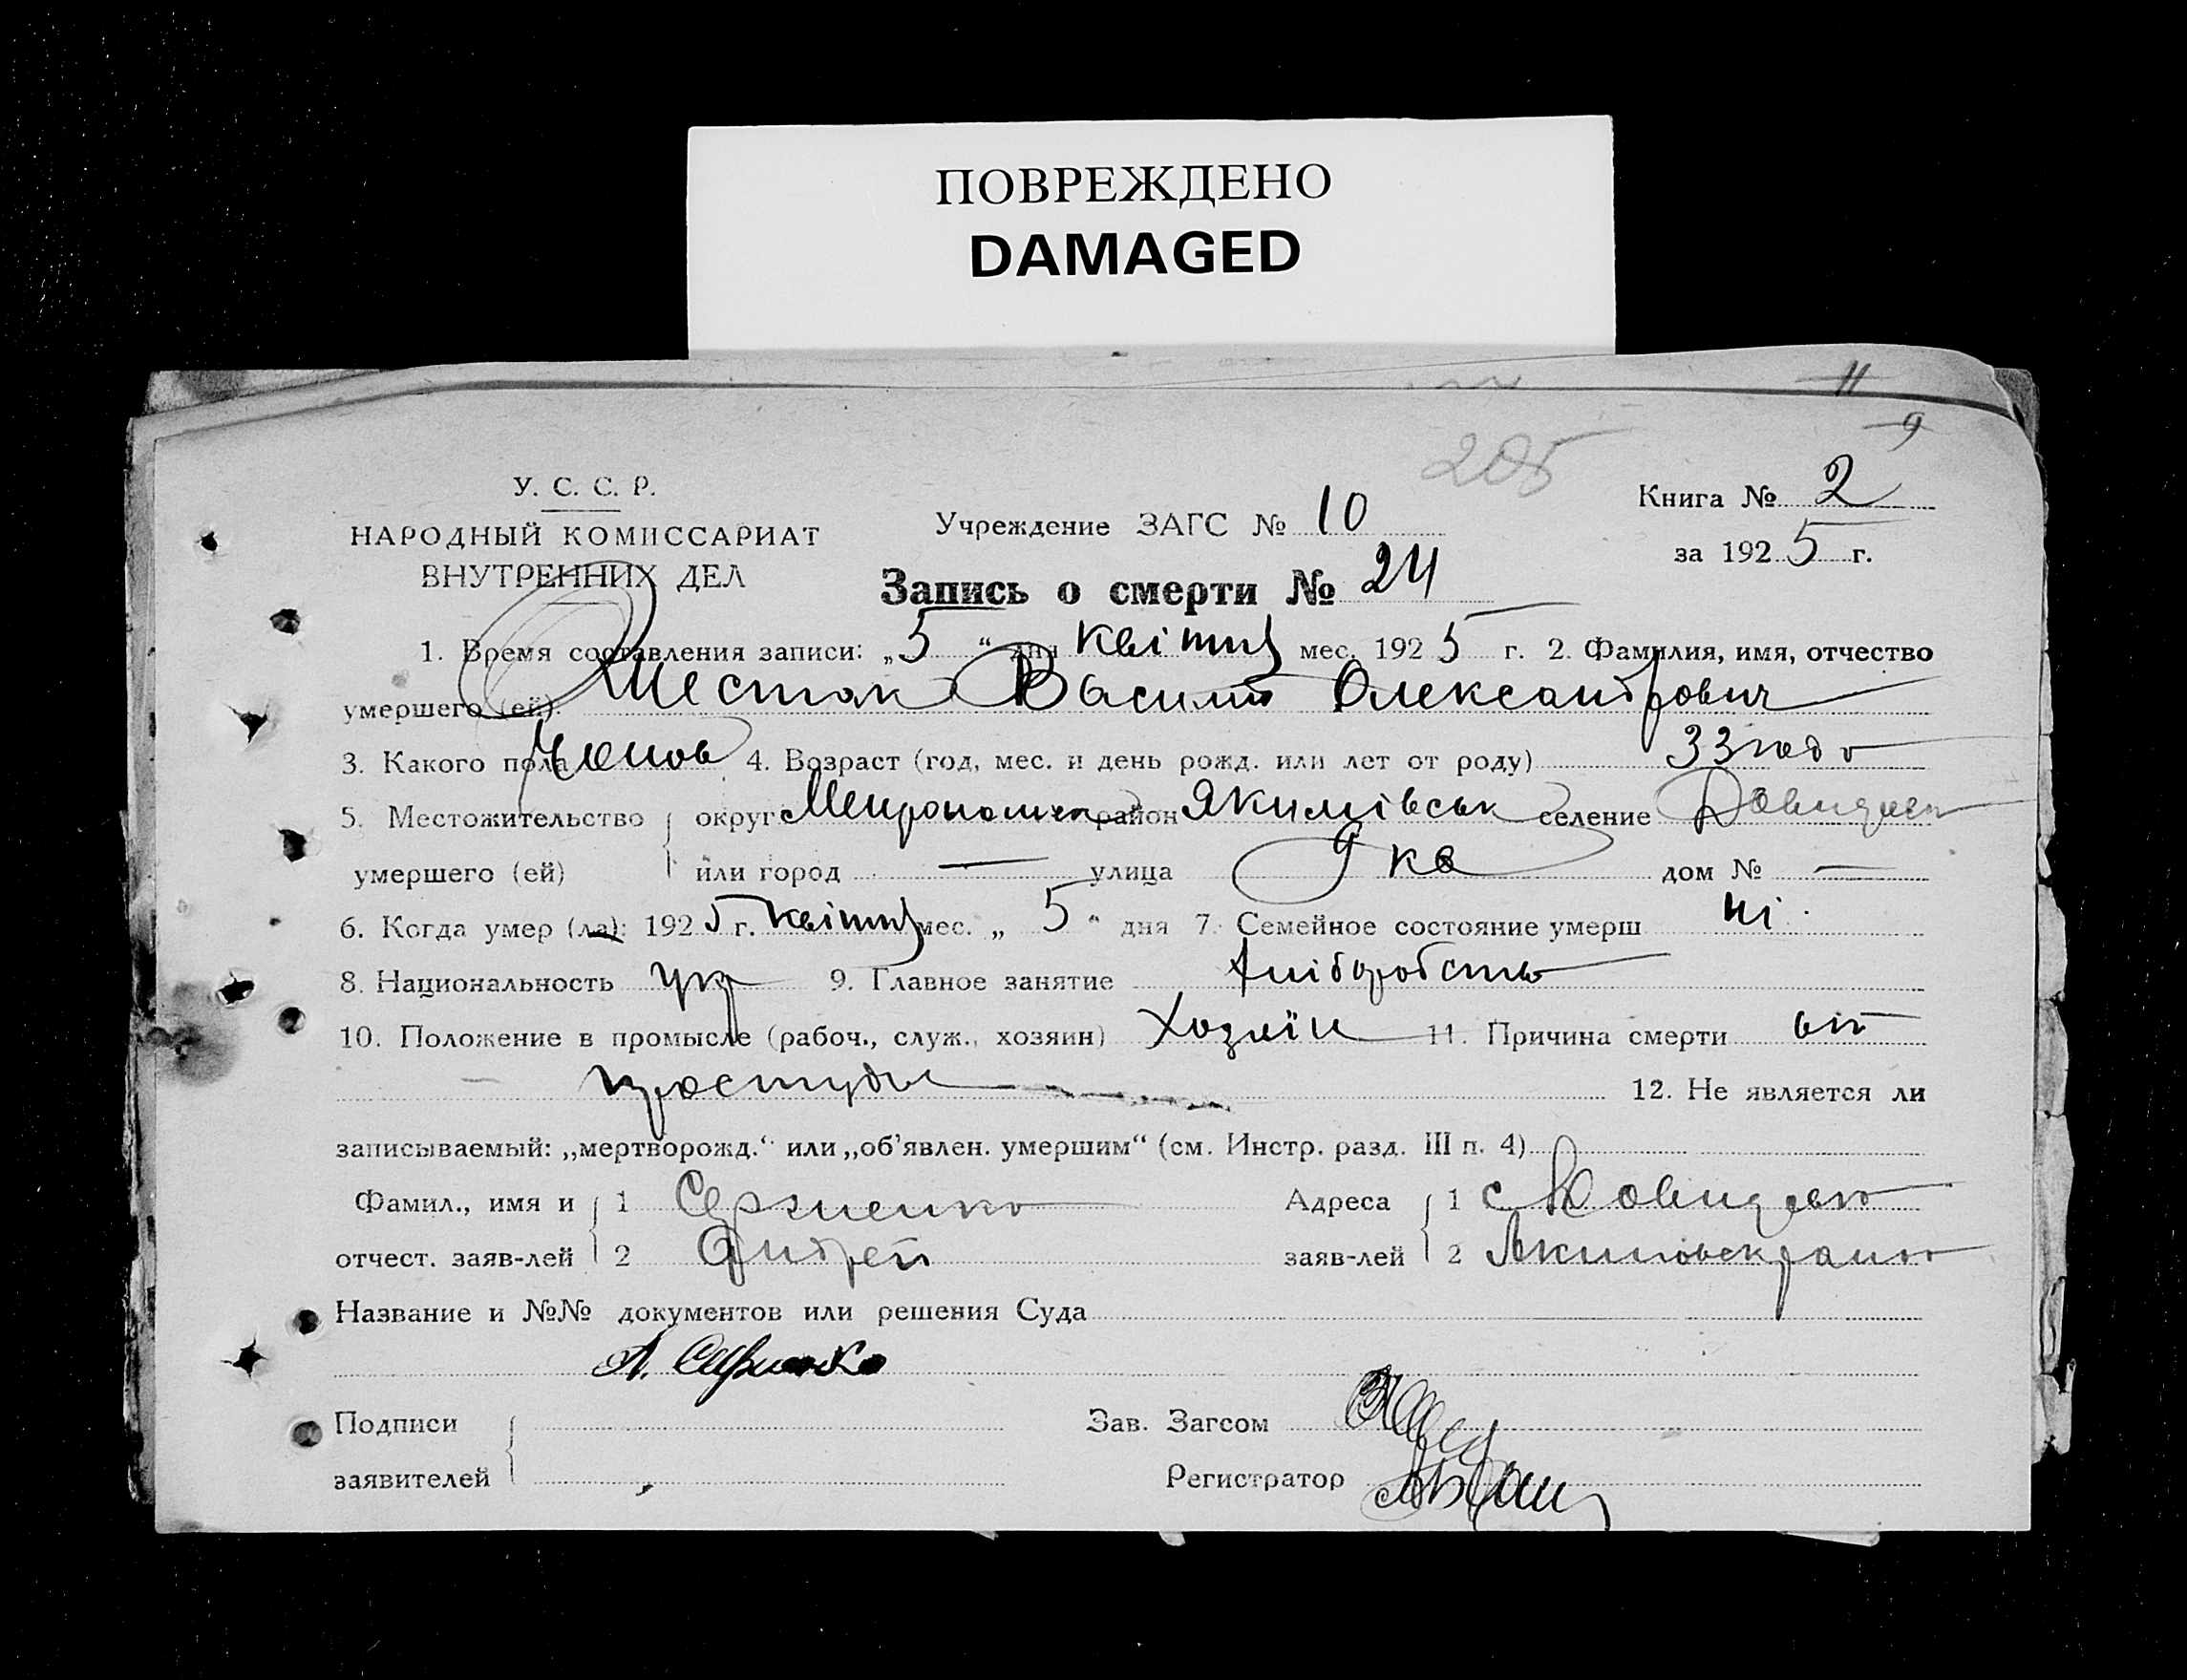 ПОВРЕЖДЕНО
DAMAGED
11
9
205
У. С. С. Р.
НАРОДНЫЙ КОМИССАРИАТ
ВНУТРЕННИХ ДЕЛ
Учреждение ЗАГС № 10
Книга № 2
за 1925 г.
Запись о смерти № 24
1. Время составления записи: „5“ дня квітня мес. 1925 г. 2. Фамилия, имя, отчество
умершего (ей). Шестак Василий Олександрович
3. Какого пола 4. Возраст (год, мес. и день рожд. или лет от роду) 33
5. Местожительство округ район Якимівськ селение
умершего (ей) или город — улица дом № —
6. Когда умер (ла): 1925 г. квітня мес. „5“ дня 7. Семейное состояние умерш
8. Национальность укр 9. Главное занятие хліборобство
10. Положение в промысле (рабоч., служ., хозяин) хозяїн 11. Причина смерти от
простуды 12. Не является ли
записываемый: „мертворожд.“ или „об'явлен. умершим“ (см. Инстр. разд. III п. 4)
Фамил., имя и 1 Сергиенко Адреса 1 с
отчест. заяв-лей 2 Андрей заяв-лей 2
Название и №№ документов или решения Суда
А. Сергиенко
Подписи Зав. Загсом
заявителей Регистратор